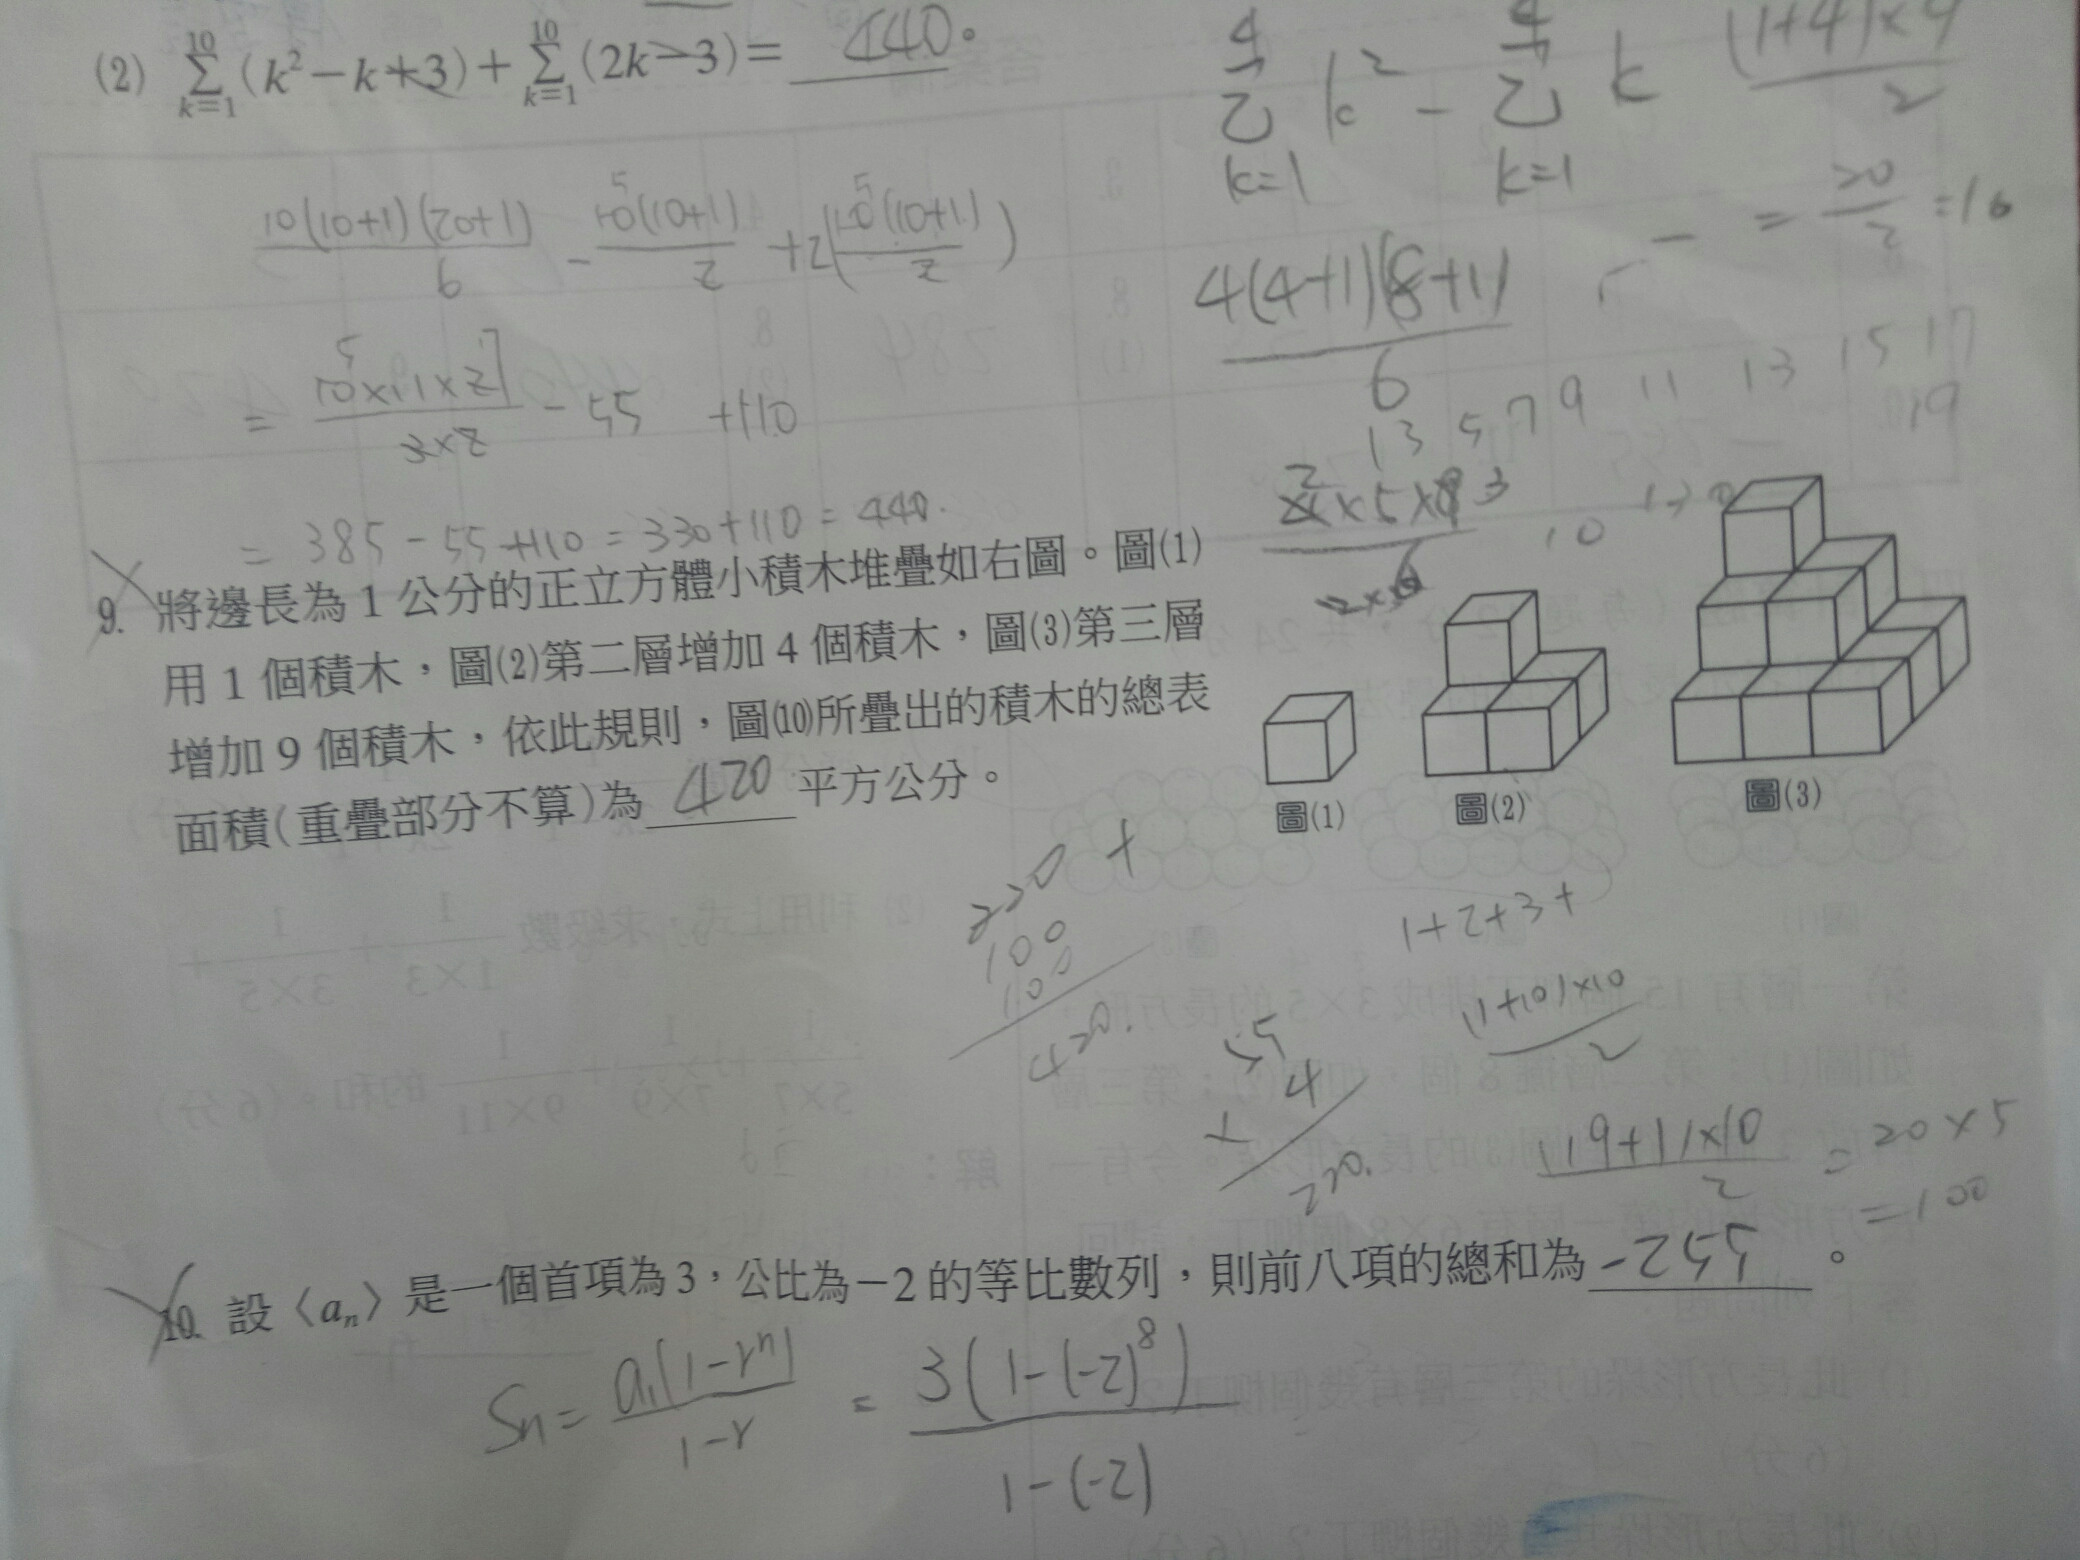 (2) $\sum_{k=1}^{10}(k^2-k+3)+\sum_{k=1}^{10}(2k-3)=$ 440。
$\frac{10(10+1)(20+1)}{6}-\frac{10(10+1)}{2}+2(\frac{10(10+1)}{2})$
$=\frac{10×11×21}{3×2}-55+110$
=385-55+110=330+110=440.
$\sum_{k=1}^{4}k^2-\sum_{k=1}^{4}k$
$\frac{(1+4)×4}{2}$
$=\frac{20}{2}=10$
$\frac{4(4+1)(8+1)}{6}$
1 3 5 7 9 11 13 15 17
19
9. 將邊長為1公分的正立方體小積木堆疊如右圖。圖(1)
用1個積木,圖(2)第二層增加4個積木,圖(3)第三層
增加9個積木,依此規則,圖(10)所疊出的積木的總表
面積(重疊部分不算)為 420 平方公分。
圖(1)
圖(2)
圖(3)
220 +
100
100
420.
1+2+3+
$\frac{(1+10)×10}{2}$
55
× 4
220.
$\frac{(19+1)×10}{2}$ =20×5
=100
10. 設〈$a_n$〉是一個首項為3,公比為-2的等比數列,則前八項的總和為 -255 。
$S_n=\frac{a_1(1-r^n)}{1-r}=\frac{3(1-(-2)^8)}{1-(-2)}$